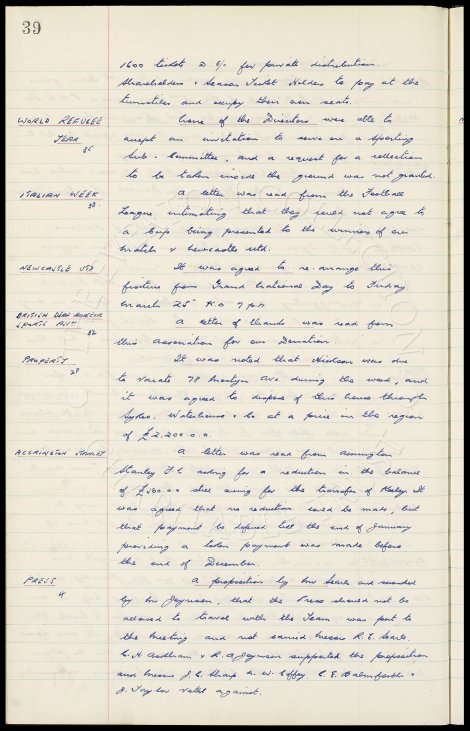 39
1600 tickets @ 6/- for private distribution.
Shareholders & Season Ticket Holders to pay at the
turnstiles and occupy their own seats.
WORLD REFUGEE YEAR 35
None of the Directors were able to
accept an invitation to serve on a Sporting
Sub-Committee, and a request for a collection
to be taken inside the ground was not granted.
ITALIAN WEEK 38
A letter was read from the Football
League intimating that they could not agree to
a Cup being presented to the winners of our
match v Newcastle Utd.
NEWCASTLE UTD
It was agreed to re-arrange this
fixture from Grand National Day to Friday
March 25th K.O 7 p.m.
BRITISH DEAF AMATEUR SPORTS ASS. 32
A letter of thanks was read from
this Association for our Donation.
PROPERTY 28
It was noted that Hickson was due
to vacate 78 Mostyn Ave during the week, and
it was agreed to dispose of this house through
Sykes. Waterhouse & Co at a price in the region
of £2,200.0.0.
ACCRINGTON STANLEY
A letter was read from Accrington
Stanley F.C. asking for a reduction in the balance
of still owing for the transfer of Keeley. It
was agreed that no reduction could be made, but
that payment be deferred till the end of January
providing a token payment was made before
the end of December.
PRESS 4
A proposition by Mr Searle and seconded
by Mr Joynson, that the Press should not be
allowed to travel with the Team was put to
the meeting and not carried. Messrs R.E. Searle.
C.H. Askham & R.A. Joynson supported the proposition
and Messrs J.C. Sharp. C.E. Balmforth &
J. Taylor voted against.